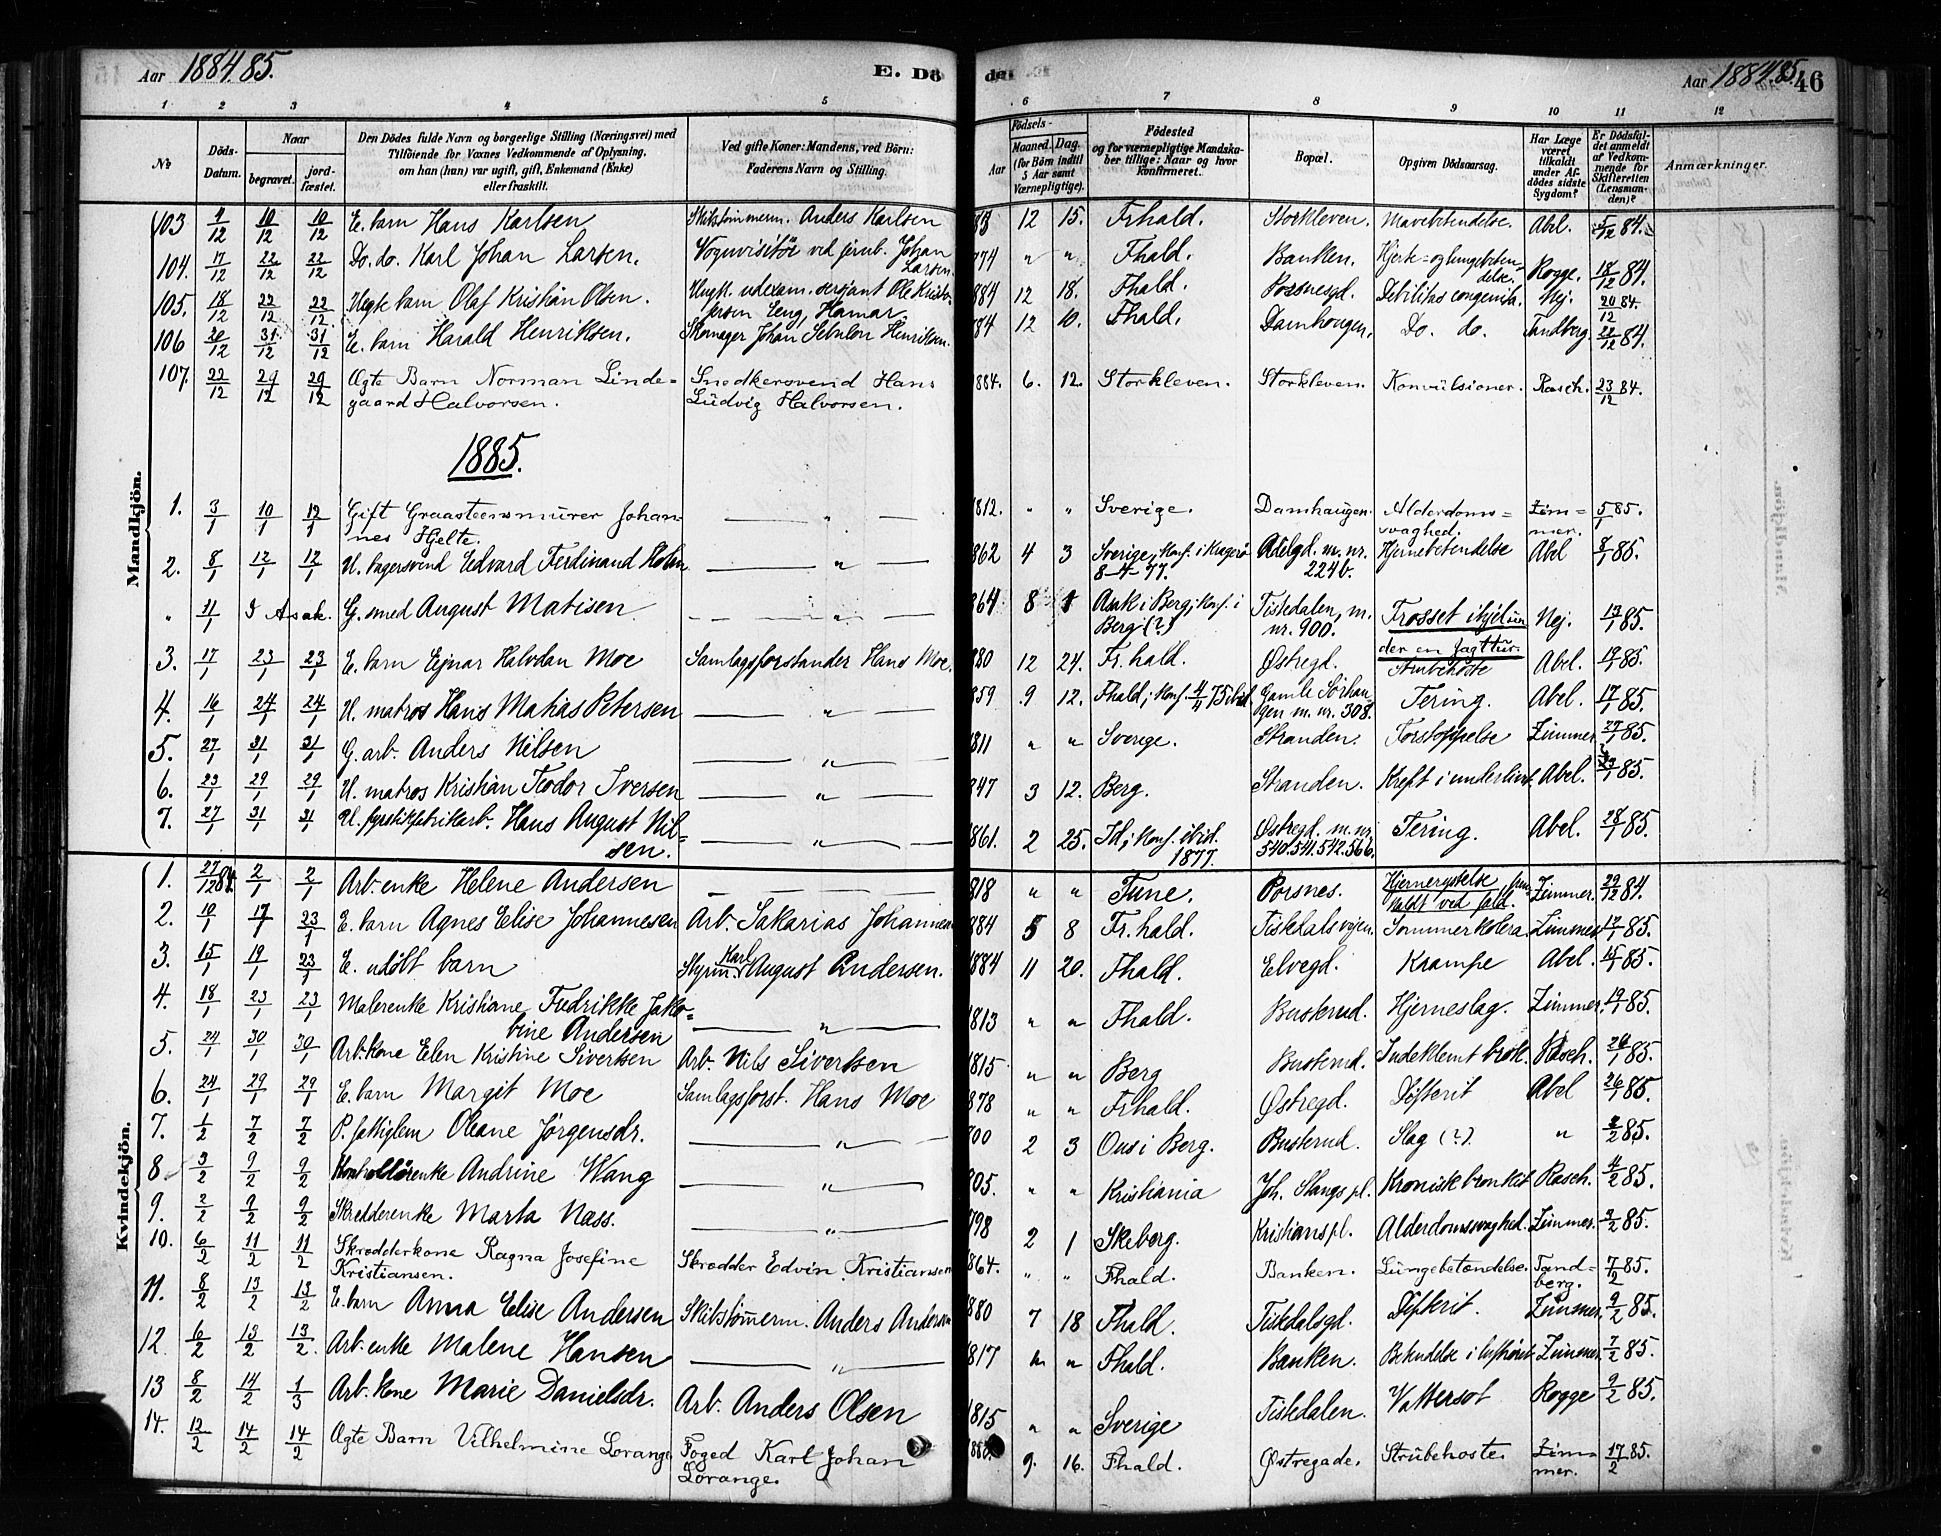 Aar 1884.85.
E. Dö
de.
Aar 1884.85.
46
1 2 3 4 5 6 7 8 9 10 11 12
No
Döds-Datum.
Naar
begravet.
jord-fæstet.
Den Dödes fulde Navn og borgerlige Stilling (Næringsvei) med
Tilföiende for Voxnes Vedkommende af Oplysning,
om han (hun) var ugift, gift, Enkemand (Enke)
eller fraskilt.
Ved gifte Koner: Mandens, ved Börn:
Faderens Navn og Stilling.
Födsels-
Aar
Maaned. Dag.
(for Börn indtil
5 Aar samt
Værnepligtige).
Födested
og for værnepligtige Mandska-
ber tillige: Naar og hvor
konfirmeret.
Bopæl.
Opgiven Dödsaarsag.
Har Læge
været
tilkaldt
under Af-
dödes sidste
Sygdom?
Er Dödsfal-
det anmeldt
af Vedkom-
mende for
Skifteretten
(Lensman-
den)?
Anmærkninger.
Mandkjön.
103 4/12 10/12 10/12 E. barn Hans Karlsen Skibstømmerm. Anders Karlsen 83 12 15. Frhald. Storkleven. Mavebetendelse. Abel. 5/12 84.
104. 17/12 22/12 22/12 Do. do. Karl Johan Larsen. Vognvisitør ved jernb. Johan Larsen. 74 " " Fhald. Banken. Hjerte- og lungebetendelse. Rogge. 18/12 84.
105. 18/12 22/12 22/12 Uegte barn Olaf Kristian Olsen. Ungk. udexam. sersjant Ole Kristofersen Eeng, Hamar. 884 12 18. Fhald. Possnesgd. Debilitas congenita. Nej. 20/12 84.
106 20/12 31/12 31/12 E. barn Harald Henriksen. Skomager Johan Sebulon Henriksen. 84 12 10. Fhald. Damhougen. Do. do. Tandberg. 22/12 84.
107. 22/12 29/12 29/12 Ægte Barn Norman Linde=
gaard Halvorsen. Snedkersvend Hans
Ludvig Halvorsen. 1884. 6. 12. Storkleven. Storkleven. Konvulsioner. Rasch. 23/12 84.
1885.
1. 3/1 10/1 12/1 Gift Graasteensmurer Johan=
nes Hjelte. — " — 1812. " " Sverige. Damhaugen. Alderdoms=
svaghed. Zim=
mer. 5/1 85.
2. 8/1 12/1 12/1 U. bagersvend Edvard Ferdinand Holm — " — 862 4 3 Sverige, konf. i Kragerø
8-4-77. Adelgd. m. nr.
224b. Hjernebetendelse Abel 8/1 85.
" 11/1 I Asak. G. smed August Matisen. — " — 864 8 1 Asak i Berg; konf. i
Berg (?) Tistedalen, m.
nr. 900. Frosset ihjel un
der en jagttur. Nej. 13/1 85.
3. 17/1 23/1 23/1 E. barn Ejnar Halvdan Moe Samlagsforstander Hans Moe. 880 12 24. Fr.hald. Østregd. Strubehoste Abel. 19/1 85.
4. 16/1 24/1 24/1 U. matros Hans Matias Petersen — " — 859 9 12. Fhald; konf. 4/4 75 ibid. Gamle Sørhau
gen m. nr. 308. Tering. Abel. 17/1 85.
5. 27/1 31/1 31/1 G. arb. Anders Nilsen — " — 1811 " " Sverige. Stranden. Forstoppelse Zimmer 27/1 85.
6. 23/1 29/1 29/1 U. matros Kristian Teodor Iversen — " — 847 3 12. Berg. Stranden. Kreft i underlivet. Abel. /1 85.
7. 27/1 31/1 31/1 U. fyrstikfabrikarb. Hans August Nil-
sen. — " — 1861. 2 25. Id; konf. ibid.
1877. Østregd. m. nr.
540.541.542.566. Tering. Abel. 28/1 85.
Kvindekjön.
1. 27/12 84. 2/1 2/1 Arb. enke Helene Andersen — 818 " " Tune. Porsnes. Hjernerystelse frem
kaldt ved fald. Zimmer. 29/12 84.
2. 10/1 17/1 23/1 E. barn Agnes Elise Johannesen Arb. Sakarias Johannesen 884 5 8 Fr.hald. Tistedalsvejen. Sommerkolera. Zimmer. 17/1 85.
3. 15/1 19/1 23/1 E. udøbt barn Styrm. Karl August Andersen. 884 11 20. Fhald. Elvegd. Krampe Abel. 15/1 85.
4. 18/1 23/1 23/1 Malerenke Kristiane Fredrikke Jako=
bine Andersen — " — 1813 " " Fhald. Busterud. Hjerneslag. Zimmer. 19/1 85.
5. 24/1 30/1 30/1 Arb. kone Elen Kristine Sivertsen Arb. Nils Sivertsen 1815 " " Berg Busterud. Indeklemt brok. Rasch. 26/1 85.
6. 24/1 29/1 29/1 E. barn Margit Moe Samlagsforst. Hans Moe 878 " " Frhald. Østregd. Difterit Abel 26/1 85.
7. 1/2 7/2 7/2 P. fattiglem Oleane Jørgensdr. — " — 800 2 3 Ous i Berg. Busterud. Slag (?). " 2/2 85.
8 3/2 9/2 9/2 Kontrollørenke Andrine Wang — " — 805. " " Kristiania Joh. Stangs pl. Kronisk bronkit Rasch. 4/2 85.
9. 2/2 9/2 9/2 Skredderenke Marta Nass. — " — 798 2 1 Skeberg. Kristianspl. Alderdomssvaghed. Zimmer. 3/2 85.
10. 6/2 11/2 11/2 Skrædderkone Ragna Josefine
Kristiansen. Skrædder Edvin Kristiansen 864. " " Fhald. Banken. Lungebetændelse. Tand=
berg. 7/2 85.
11. 8/2 13/2 13/2 E. barn Anna Elise Andersen Skibstømmerm. Anders Andersen 880 7 18 Fhald. Tistedalsgd. Difterit. Zimmer. 9/2 85.
12 6/2 13/2 13/2 Arb. enke Malene Hansen — " — 1817 " " Fhald. Banken. Betendelse i luftrøret Zimmer. 7/2 85.
13 8/2 14/2 1/3 Arb. kone Marie Danielsdr. Arb. Anders Olsen 1815 " " Sverige Tistedalen. Vattersot Rogge 9/2 85.
14. 12/2 14/2 14/2 Ægte Barn Vilhelmine Lorange Foged Karl Johan
Lorange. 9. 16. Fhald. Østregade. Strubehoste. Zim=
mer. 17/2 85.